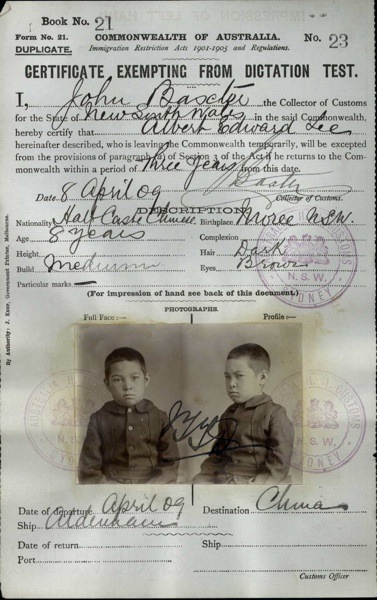 IMPRESSION OF LEFT HAND
Book No. 21
Form No. 21. COMMONWEALTH OF AUSTRALIA. No. 23
DUPLICATE. Immigration Restriction Acts 1901-1905 and Regulations.
CERTIFICATE EXEMPTING FROM DICTATION TEST.
I, John Baxter the Collector of Customs
for the State of New South Wales in the said Commonwealth,
hereby certify that Albert Edward Lee
hereinafter described, who is leaving the Commonwealth temporarily, will be excepted
from the provisions of paragraph (a) of Section 3 of the Act if he returns to the Com-
monwealth within a period of Three Years
Date 8 April 09 Collector of Customs.
DESCRIPTION
Nationality Half Caste Chinese Birthplace Moree N.S.W.
Age 8 years Complexion
Height Hair Dark
Build Medium Eyes Brown
Particular marks —
(For impression of hand see back of this document.)
PHOTOGRAPHS.
Full Face :— Profile :—
Date of departure April 09 Destination China
Ship Aldenham
Date of return Ship
Port
Customs Officer
By Authority: J. Kemp, Government Printer, Melbourne.
AUSTRALIA H.M. CUSTOMS
N.S.W.
SYDNEY
AUSTRALIA H.M. CUSTOMS
N.S.W.
SYDNEY
AUSTRALIA H.M. CUSTOMS
N.S.W.
SYDNEY